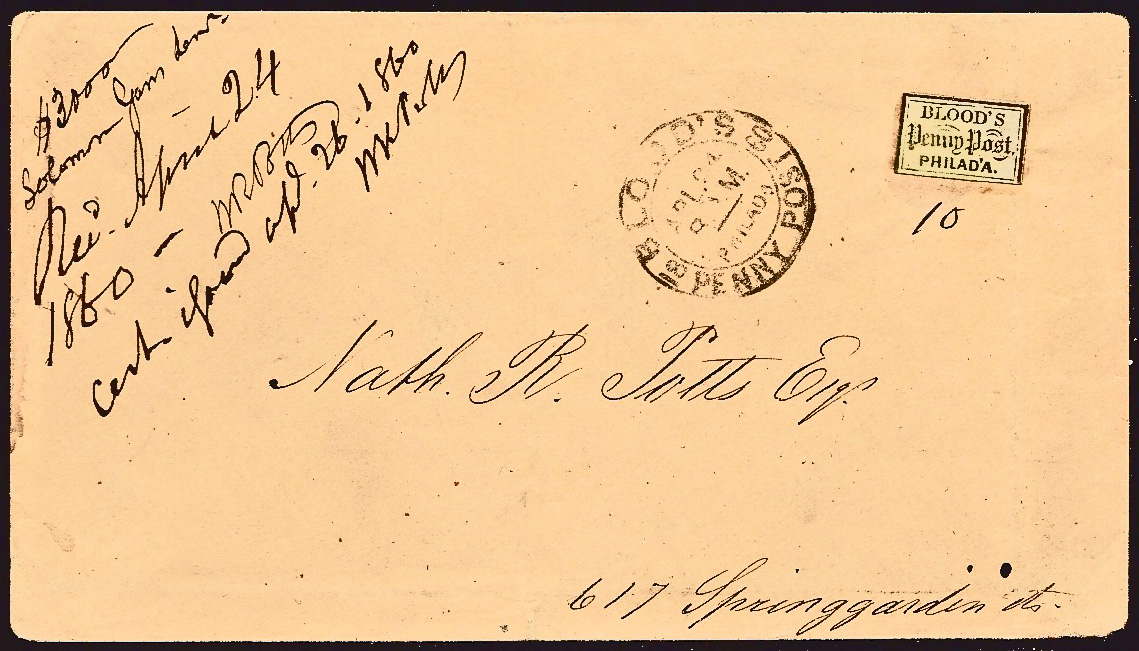 $3000
Solomon
Rec. April 24
1860 — NR Potts
cert. issued apl. 26. 1860
NR Potts
BLOOD'S
PENNY POST
PHILADA
BLOOD'S
Penny Post.
PHILAD'A.
10
Nath. R. Potts Esq.
617 Springgarden st.